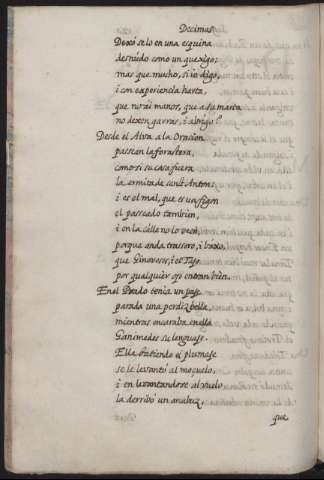 Decimas
Dexóselo en una esquina
desnudo como un quexigo;
mas que mucho, si io digo,
i con experiencia harta,
que no ai manos, que a su marta
no dexen garras, i abrigo?
Desde el Alva a la Oracion
passean la forastera,
como si su casa fuera
la ermita de sanct Anton;
i es el mal, que es un
el passeado tambien,
i en la calle no lo ven,
porque anda trassero, i
que Ginoveses, i el Tajo
por qualquier ojo entran bien.
En el Prado tenia un paje
parada una perdiz bella
mientras encaraba en ella
Ganimedes su lenguaje.
Ella batiendo el plumaje
se le levantó al moçuelo,
i en levantandose al vuelo
la derribó un
que